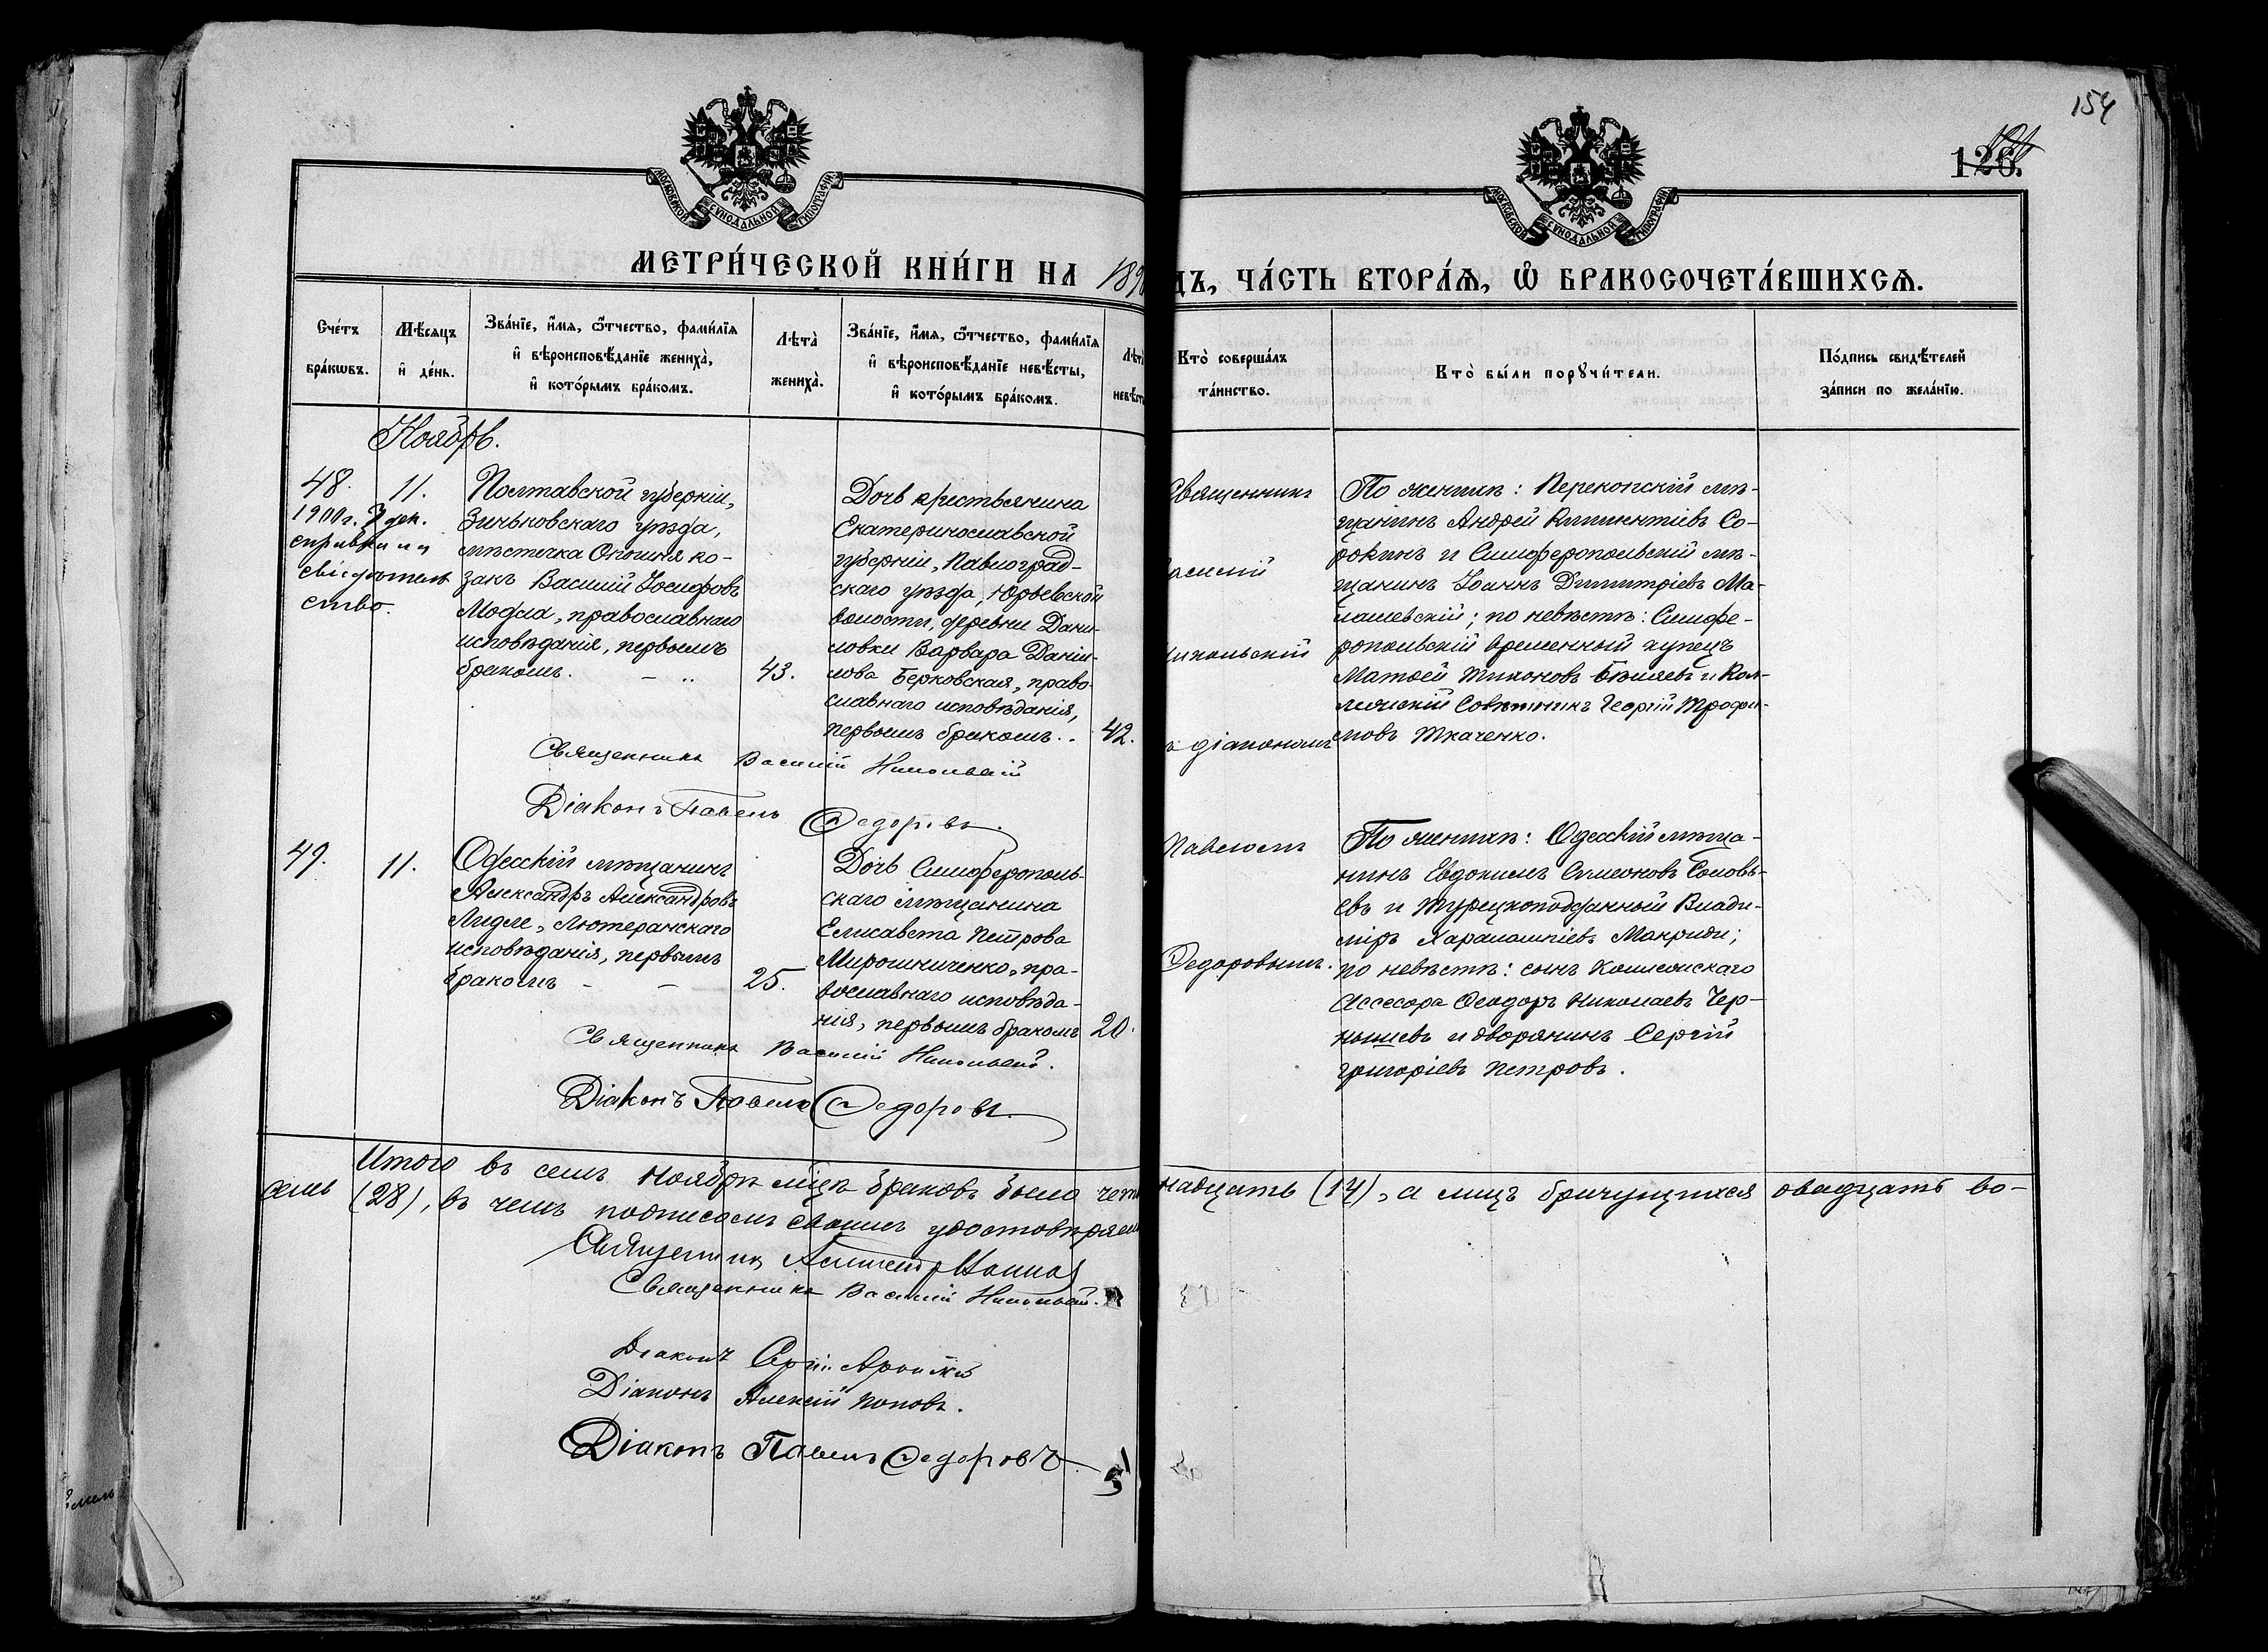 154
126.
МОСКОВСКОЙ СѴНОДАЛЬНОЙ ТИПОГРАФІИ
МОСКОВСКОЙ СѴНОДАЛЬНОЙ ТИПОГРАФІИ
МЕТРИ́ЧЕСКОЙ КНИ́ГИ НА 189
ДЪ, ЧА́СТЬ ВТОРА́Ѧ, Ѡ҆ БРАКОСОЧЕТА́ВШИХСѦ.
Сче́тъ
бра́кѡвъ.
Мѣ́сяцъ
и҆ де́нь.
Зва́нїе, и҆́мѧ, ѻ҆́тчество, фами́лїѧ
и҆ вѣроисповѣ́данїе жениха̀,
и҆ кото́рымъ бра́комъ.
Лѣта̀
жениха̀.
Зва́нїе, и҆́мѧ, ѻ҆́тчество, фами́лїѧ
и҆ вѣроисповѣ́данїе невѣ́сты,
и҆ кото́рымъ бра́комъ.
Лѣта̀
невѣ́сты
Кто̀ соверша́лъ
та́инство.
Кто̀ бы́ли порꙋчи́тели.
По́дпись свидѣ́телей
за́писи по жела́нїю.
Ноябрь.
48.
1900 г. 7 дек.
справка и
свидѣтель
ство.
11.
Полтавской губерніи,
Зиньковскаго уѣзда,
мѣстечка Опошня ко-
закъ Василій Іосифовъ
Модла, православнаго
исповѣданія, первымъ
бракомъ. –
43.
Дочь крестьянина
Екатеринославской
губерніи, Павлоград-
скаго уѣзда, Юрьевской
волости, деревни Дани-
ловки Варвара Даніи-
лова Берковская, право-
славнаго исповѣданія,
первымъ бракомъ.
42.
Священникъ
Василій
Никольскій
съ діакономъ
По женихѣ: Перекопскій мѣ-
щанинъ Андрей Климентіевъ Со-
рокинъ и Симферопольскій мѣ-
щанинъ Іоаннъ Димитріевъ Ма-
лашевскій; по невѣстѣ: Симфе-
ропольскій временный купецъ
Матѳей Тихоновъ Бѣляевъ и Кол-
лежскій Совѣтникъ Георгій Трофи-
мовъ Ткаченко.
Священникъ Василій Никольскій
Діаконъ Павелъ Ѳедоровъ.
49.
11.
Одесскій мѣщанинъ
Александръ Александровъ
Лидле, лютеранскаго
исповѣданія, первымъ
бракомъ – –
25.
Дочь Симферополь-
скаго мѣщанина
Елисавета Петрова
Мирошниченко, пра-
вославнаго исповѣда-
нія, первымъ бракомъ
20.
Павломъ
Ѳедоровымъ.
По женихѣ: Одесскій мѣща-
нинъ Евдокимъ Симоновъ Соловь-
евъ и Турецкоподданный Влади-
міръ Харалампіевъ Макриди;
по невѣстѣ: сынъ Коллежскаго
Ассесора Ѳеодоръ Николаевъ Чер-
нышевъ и дворянинъ Сергій
Григоріевъ Петровъ.
Священникъ Василій Никольскій.
Діаконъ Павелъ Ѳедоровъ.
Итого въ семъ Ноябрѣ мѣцѣ браковъ было четыр
надцать (14), а лицъ брачущихся двадцать во-
семь (28), въ чемъ подписомъ своимъ удостовѣряемъ
Священникъ
Священникъ Василій Никольскій.
Діаконъ Сергій
Діаконъ Алексій Поповъ.
Діаконъ Павелъ Ѳедоровъ